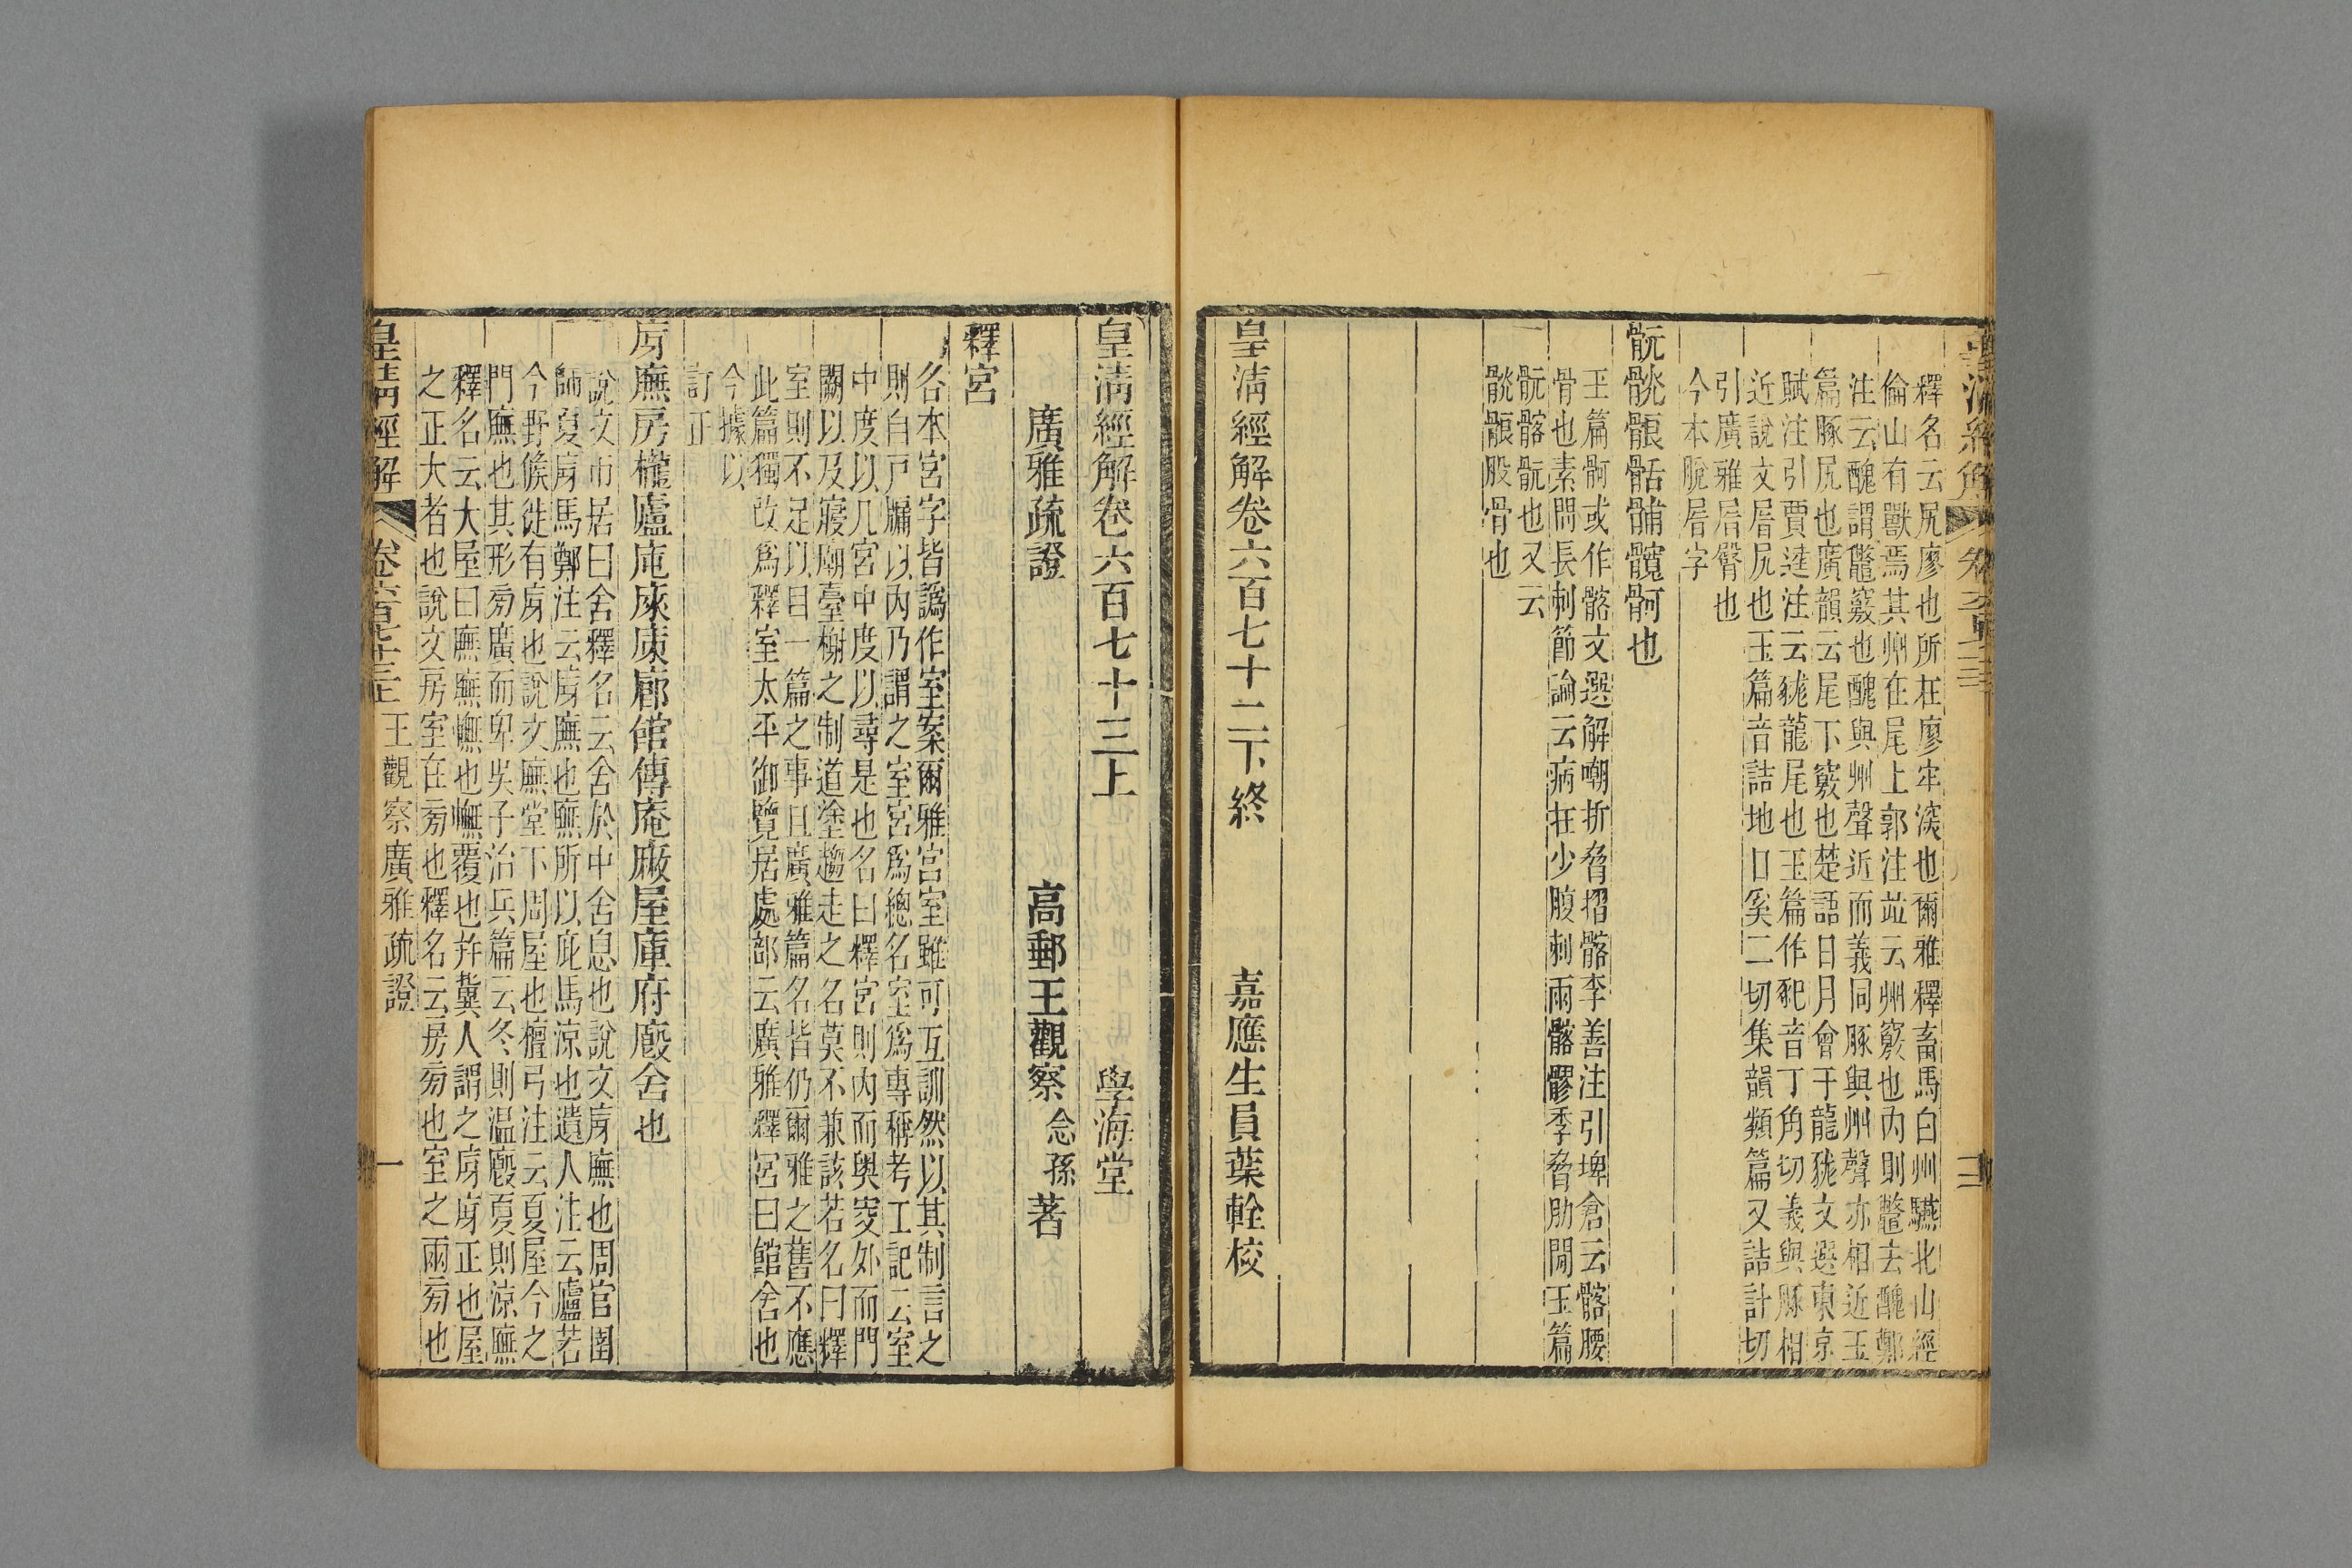 釋名云尻廖也所在廖牢深也爾雅釋畜馬白州驠北山經
倫山有獸焉其州在尾上郭注竝云州竅也內則鼈去醜鄭
注云醜謂鼈竅也醜與州聲近而義同豚與州聲亦相近玉
篇豚尻也廣韻云尾下竅也楚語日月會于龍𧱓文選東京
賦注引賈逵注云𧱓龍尾也玉篇作𧰵音丁角切義與豚相
近說文𡱂尻也玉篇音詰地口奚二切集韻類篇又詰計切
引廣雅𡱂臀也
今本脫𡱂字
骯𩨹𩩒𩨹䯙髖骬也
玉篇骬或作髂文選解嘲折脅摺髂李善注引埤倉云髂腰
骨也素問長刺節論云病在少腹刺兩髂髎季脅肋閒玉篇
骯髂骯也又云
股骨也
皇清經解卷六百七十二下終
嘉應生員葉輇校
皇清經解卷六百七十三上
學海堂
廣雅疏證
高郵王觀察念孫著
釋宮
各本宮字皆譌作室案爾雅宮室雖可互訓然以其制言之
則自戶牖以內乃謂之室宮爲總名室爲專稱考工記云室
中度以几宮中度以尋是也名曰釋宮則內而奧窔外而門
闕以及寢廟臺榭之制道塗趨走之名莫不兼該若名曰釋
室則不足以目一篇之事且廣雅篇名皆仍爾雅之舊不應
此篇獨改爲釋室太平御覽居處部云廣雅釋宮曰館舍也
今據以
訂正
庌廡房櫳廬庵庲庾廊館傳庵廠屋庫府廄舍也
說文市居曰舍釋名云舍於中舍息也說文庌廡也周官圉
師夏庌馬鄭注云庌廡也廡所以庇馬涼也遺人注云廬若
今野候徙有庌也說文廡堂下周屋也檀弓注云夏屋今之
門廡也其形旁廣而卑吳子治兵篇云冬則溫廄夏則涼廡
釋名云大屋曰廡廡幠也幠覆也幷冀人謂之庌庌正也屋
之正大者也說文房室在旁也釋名云房旁也室之兩旁也
皇清經解
卷六百七十三上
王觀察廣雅疏證
一